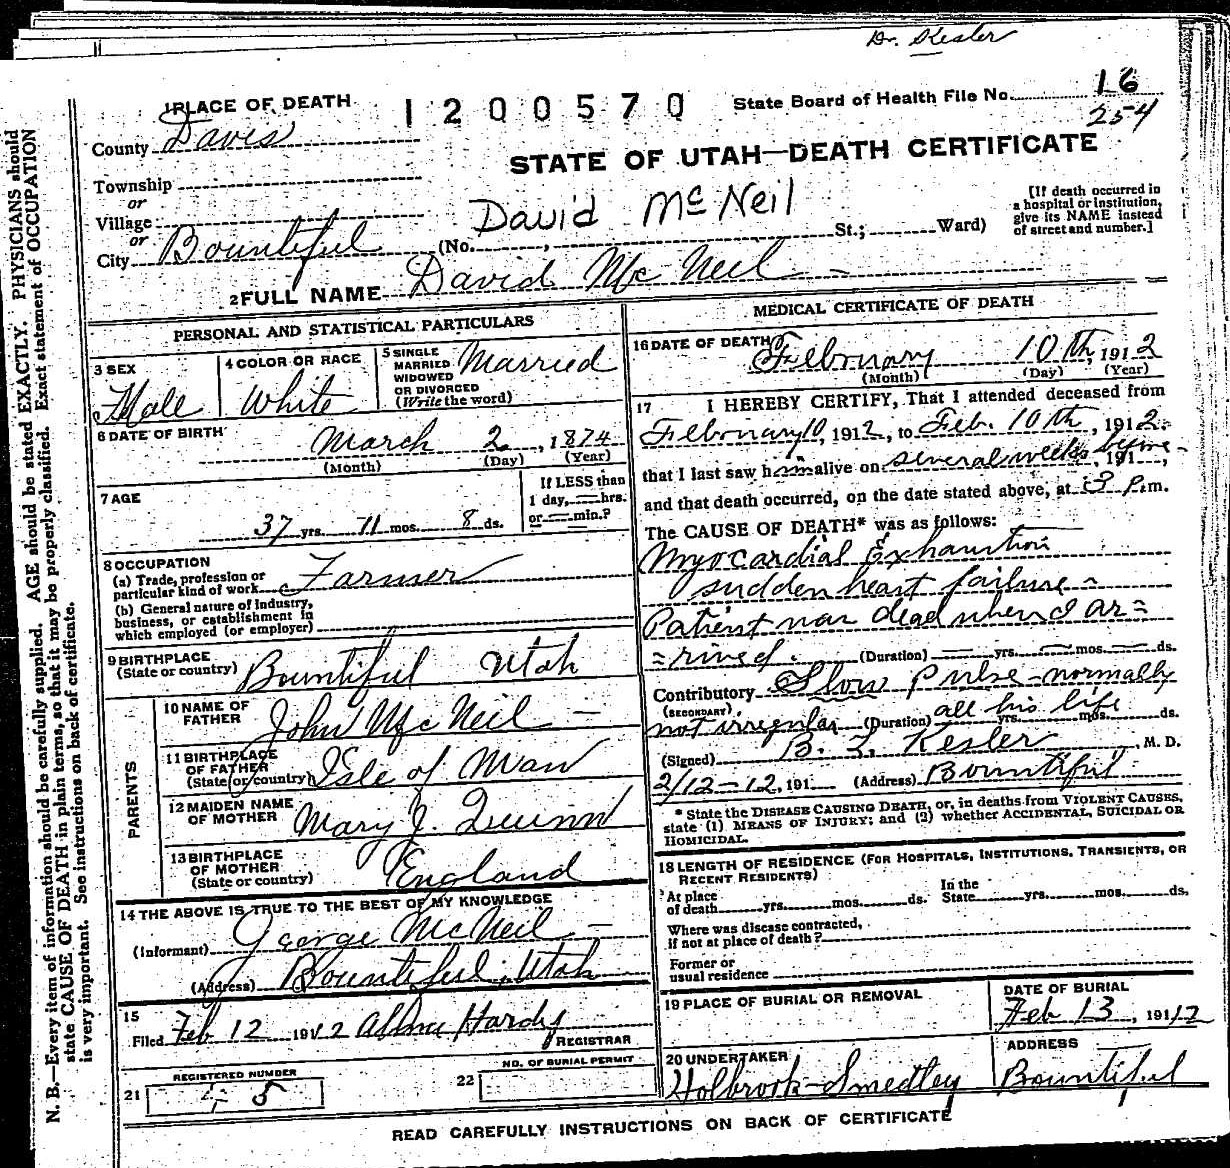 Dr. Kesler
1 PLACE OF DEATH
1200570
State Board of Health File No. 16
254
County Davis
STATE OF UTAH—DEATH CERTIFICATE
Township
or
Village
or
City Bountiful
(No. , St.; Ward)
David McNeil
[If death occurred in
a hospital or institution,
give its NAME instead
of street and number.]
2 FULL NAME David McNeil
PERSONAL AND STATISTICAL PARTICULARS
3 SEX
Male
4 COLOR OR RACE
White
5 SINGLE
MARRIED
WIDOWED
OR DIVORCED
(Write the word)
Married
6 DATE OF BIRTH
March 2, 1874
(Month) (Day) (Year)
7 AGE
37 yrs. 11 mos. 8 ds.
If LESS than
1 day, hrs.
or min.?
8 OCCUPATION
(a) Trade, profession or
particular kind of work Farmer
(b) General nature of Industry,
business, or establishment in
which employed (or employer)
9 BIRTHPLACE
(State or country) Bountiful Utah
PARENTS
10 NAME OF
FATHER John McNeil
11 BIRTHPLACE
OF FATHER
(State or country) Isle of Man
12 MAIDEN NAME
OF MOTHER Mary J. Quinn
13 BIRTHPLACE
OF MOTHER
(State or country) England
14 THE ABOVE IS TRUE TO THE BEST OF MY KNOWLEDGE
(Informant) George McNeil
(Address) Bountiful, Utah
15
Filed Feb 12 1912 Hardy
REGISTRAR
REGISTERED NUMBER
21 5
NO. OF BURIAL PERMIT
22
MEDICAL CERTIFICATE OF DEATH
16 DATE OF DEATH
February 10th, 1912
(Month) (Day) (Year)
17 I HEREBY CERTIFY, That I attended deceased from
February 10, 1912, to Feb. 10th, 1912
that I last saw him alive on several weeks before, 191 ,
and that death occurred, on the date stated above, at 3 P.m.
The CAUSE OF DEATH* was as follows:
Myocardial Exhaustion
sudden heart failure
Patient was dead when I ar=
=rived. (Duration) yrs. mos. ds.
Contributory Slow Pulse - normally
(SECONDARY) not irregular (Duration) all his life yrs. mos. ds.
(Signed) B. F. Kesler, M. D.
2/12-12, 191 (Address) Bountiful
* State the DISEASE CAUSING DEATH, or, in deaths from VIOLENT CAUSES,
state (1) MEANS OF INJURY; and (2) whether ACCIDENTAL, SUICIDAL OR
HOMICIDAL.
18 LENGTH OF RESIDENCE (FOR HOSPITALS, INSTITUTIONS, TRANSIENTS, OR
RECENT RESIDENTS)
At place
of death yrs. mos. ds.
In the
State yrs. mos. ds.
Where was disease contracted,
if not at place of death?
Former or
usual residence
19 PLACE OF BURIAL OR REMOVAL
DATE OF BURIAL
Feb 13, 1912
20 UNDERTAKER
Holbrook-Smedley
ADDRESS
Bountiful
READ CAREFULLY INSTRUCTIONS ON BACK OF CERTIFICATE
N. B.—Every item of information should be carefully supplied. AGE should be stated EXACTLY. PHYSICIANS should
state CAUSE OF DEATH in plain terms, so that it may be properly classified. Exact statement of OCCUPATION
is very important. See instructions on back of certificate.